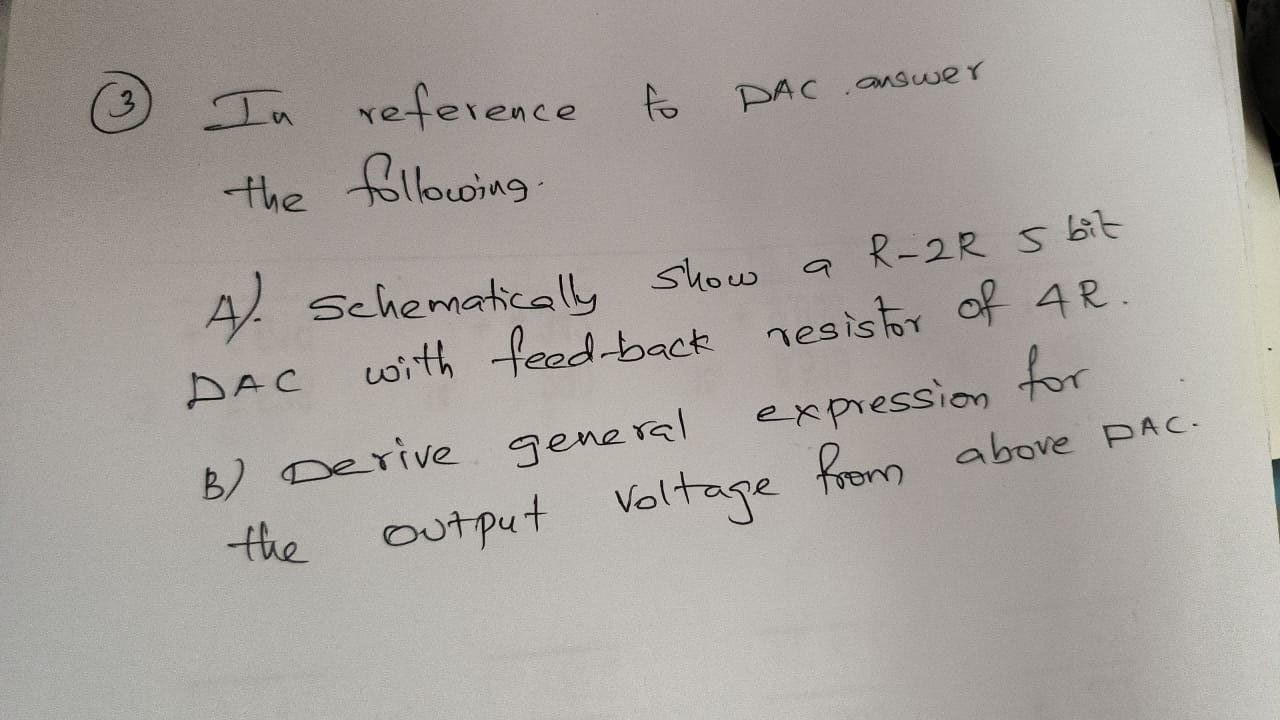 3 In reference to DAC. answer
the following.
A). Schematically show a R-2R 5 bit
DAC with feed-back resistor of 4R.
B) Derive general expression for
the output voltage from above DAC.